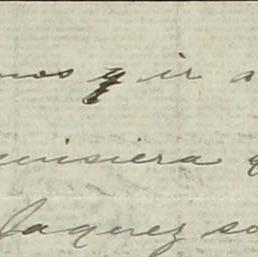 mos q ir a
quisiera q
Jaquez so